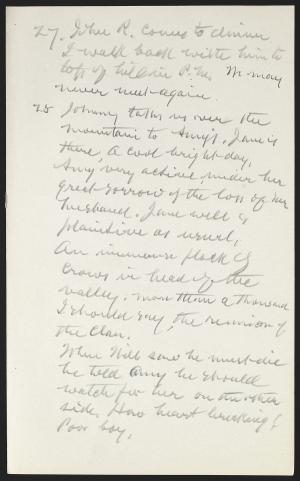 27. John R. comes to dinner
I walk back with him to
top of hill in P.M. We may
never meet again.
28 Johnny takes us over the
mountain to Amy's. Jane is
there, A cool bright day,
Amy very active, under her
great sorrow of the loss of her
husband. Jane well &
plaintive as usual,
An immense flock of
Crows in head of the
valley, more than a thousand
I should say, the reunion of
the Clan.
When Will saw he must die
he told Amy he should
watch for her on the other
side. How heart breaking!
Poor boy.